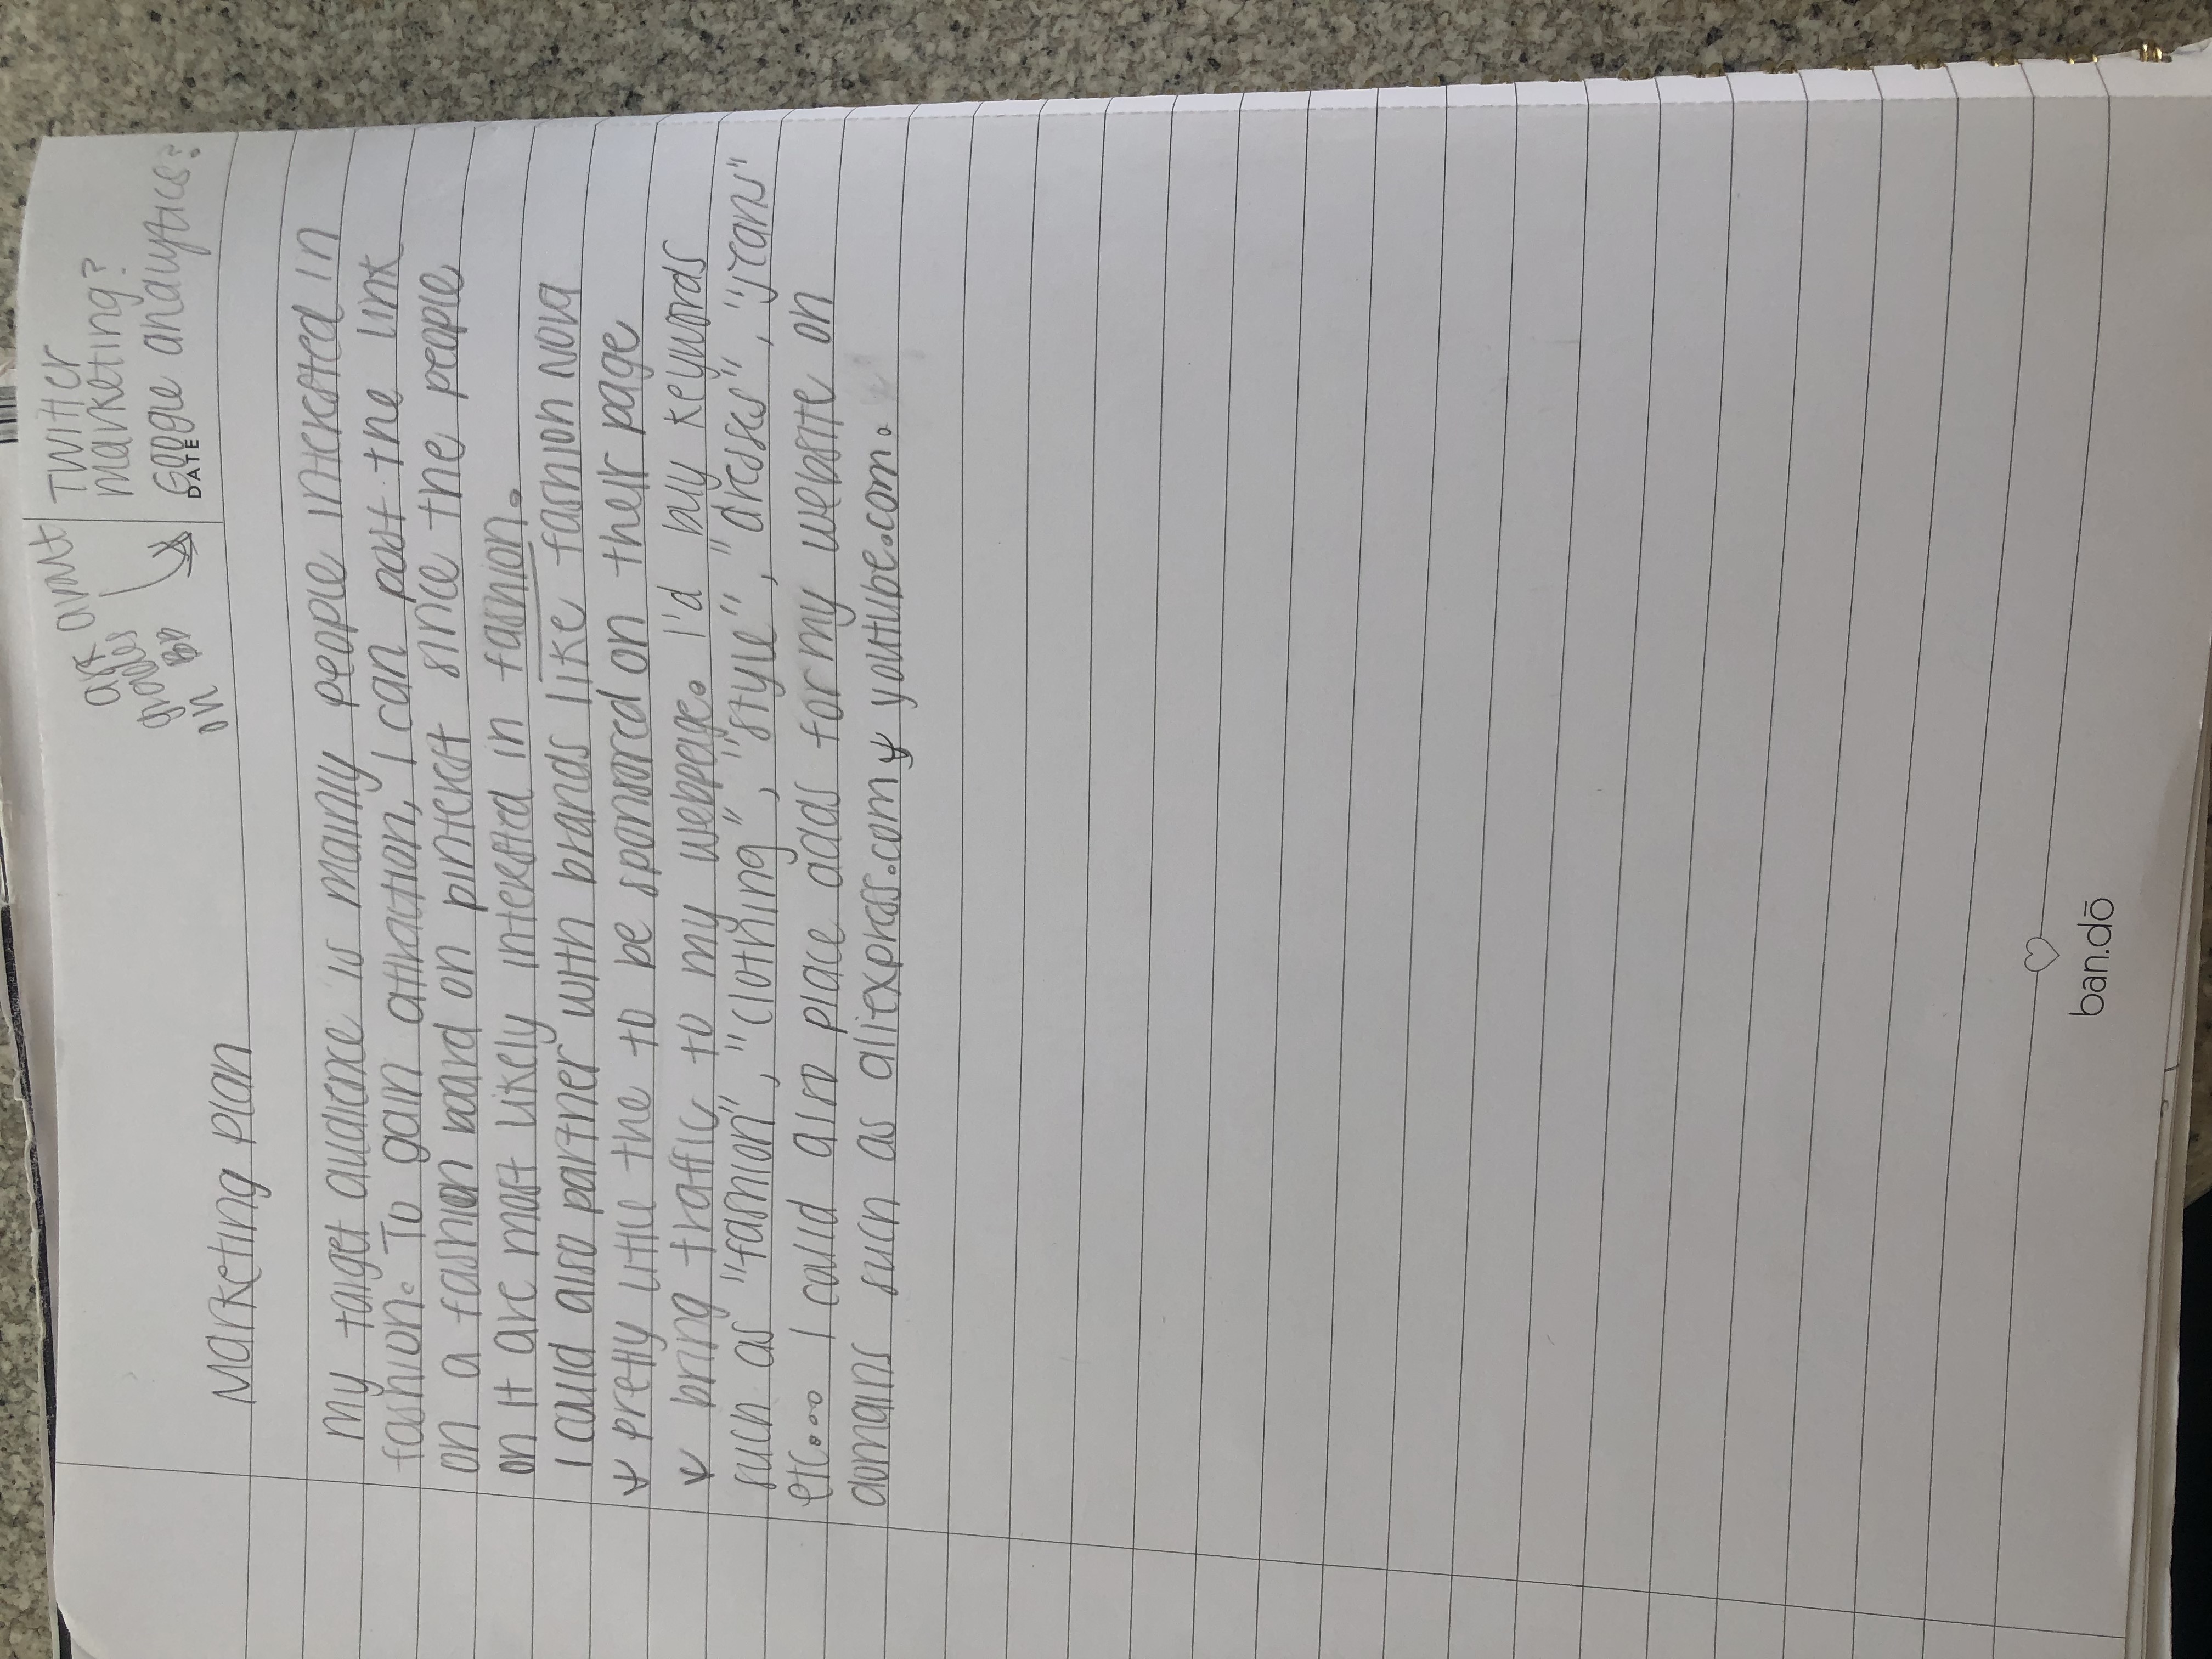 ask about
grades
on BB
Twitter
marketing?
Google analytics?
DATE
Marketing Plan
My target audience is mainly people interested in
fashion. To gain attraction, I can post the link
on a fashion board on pinterest since the people
on it are most likely interested in fashion.
I could also partner with brands like fashion Nova
& pretty little the to be sponsored on their page
& bring traffic to my webpage. I'd buy keywords
such as "fashion", "clothing", "style", "dresses", "jeans"
etc... I could also place adds for my website on
domains such as aliexpress.com & youtube.com.
ban.dō